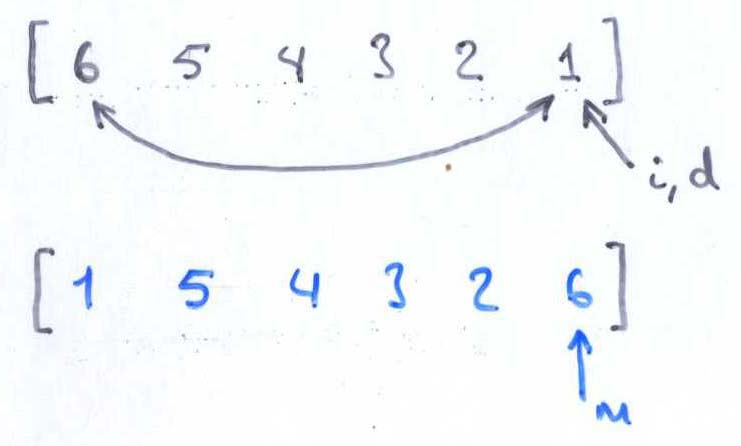 [ 6 5 4 3 2 1 ]
i, d
[ 1 5 4 3 2 6 ]
m